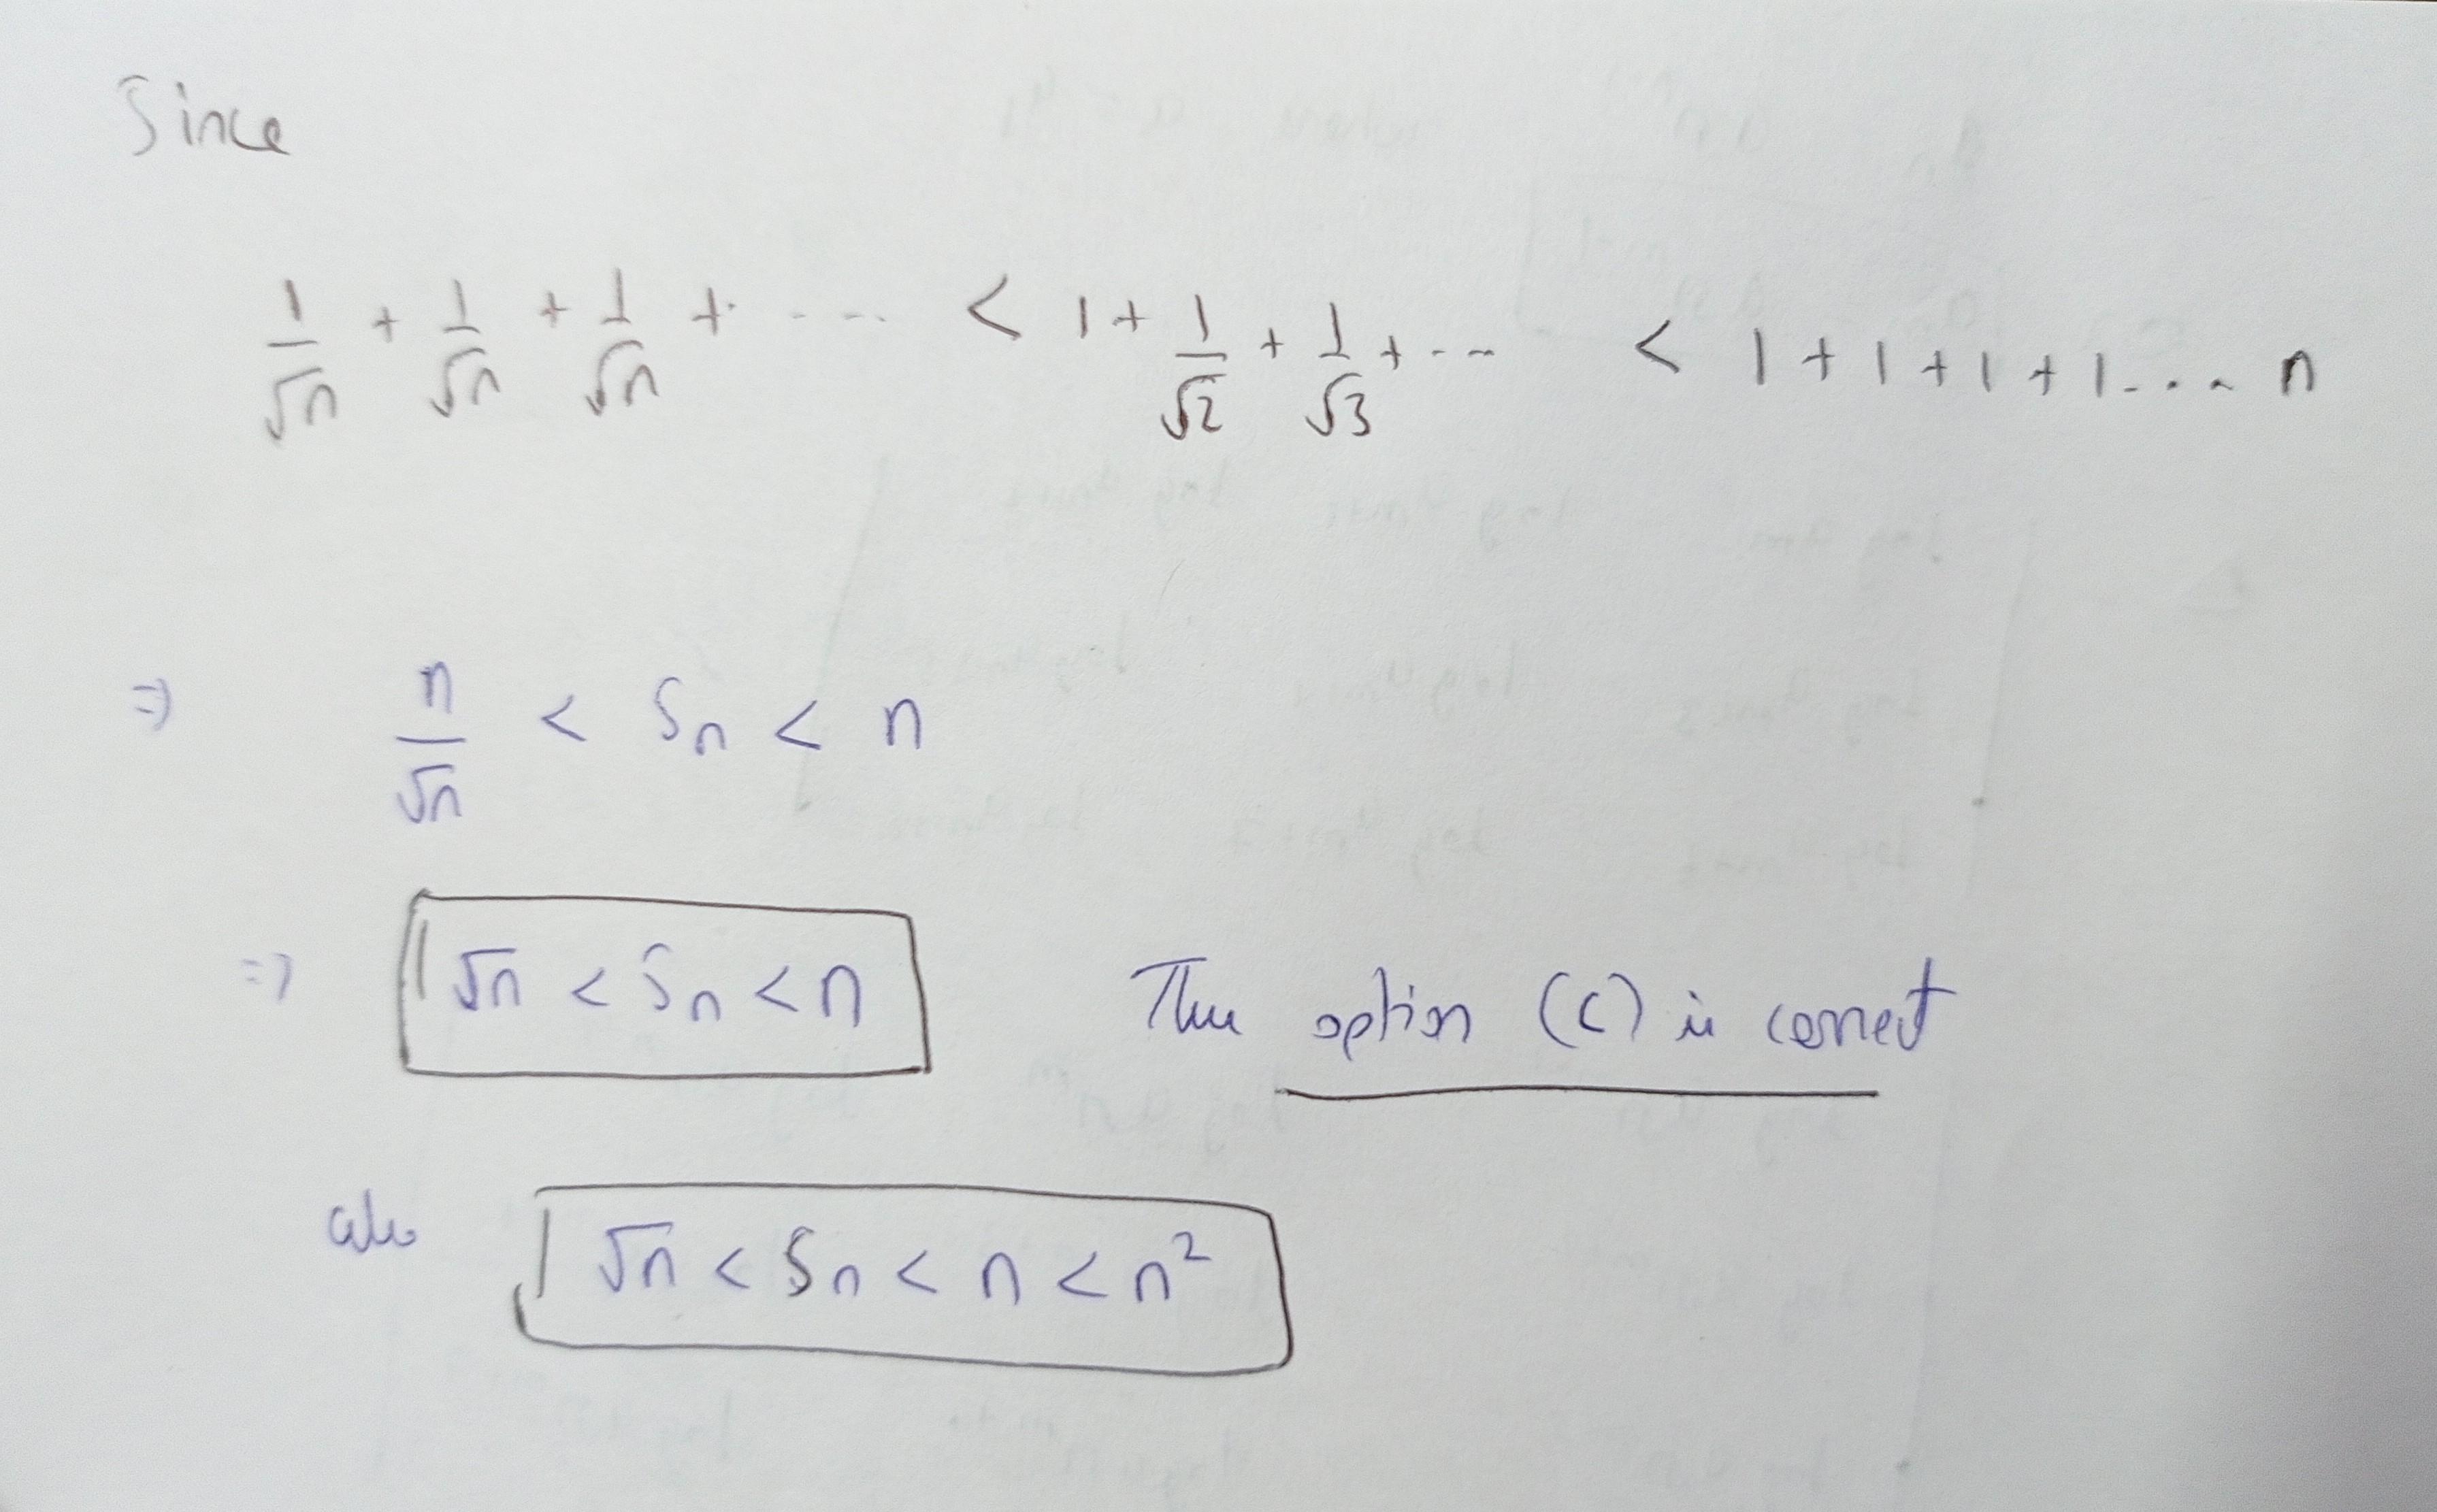 Since
1/√n + 1/√n + 1/√n + ---- < 1 + 1/√2 + 1/√3 + ---- < 1 + 1 + 1 + 1 ---- n
⇒ n/√n < Sn < n
⇒ √n < Sn < n Thus option (C) is correct
also √n < Sn < n < n²